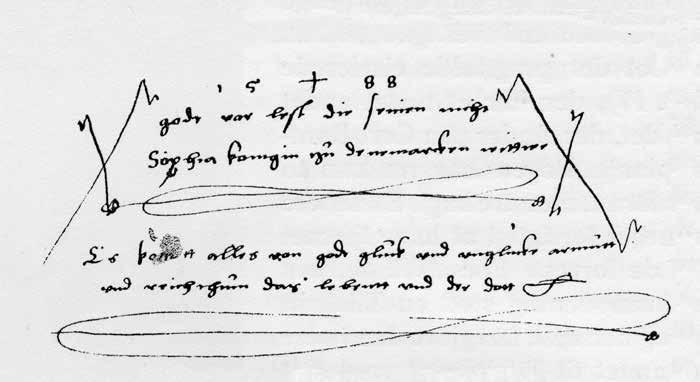 1 5 + 8 8
gode vor lest die seinen nicht
Sophia konigin zu denemarcken wettwe
Es komtt alles von gode gluck und ungluck armutt
und reichthum das lebentt und der dott